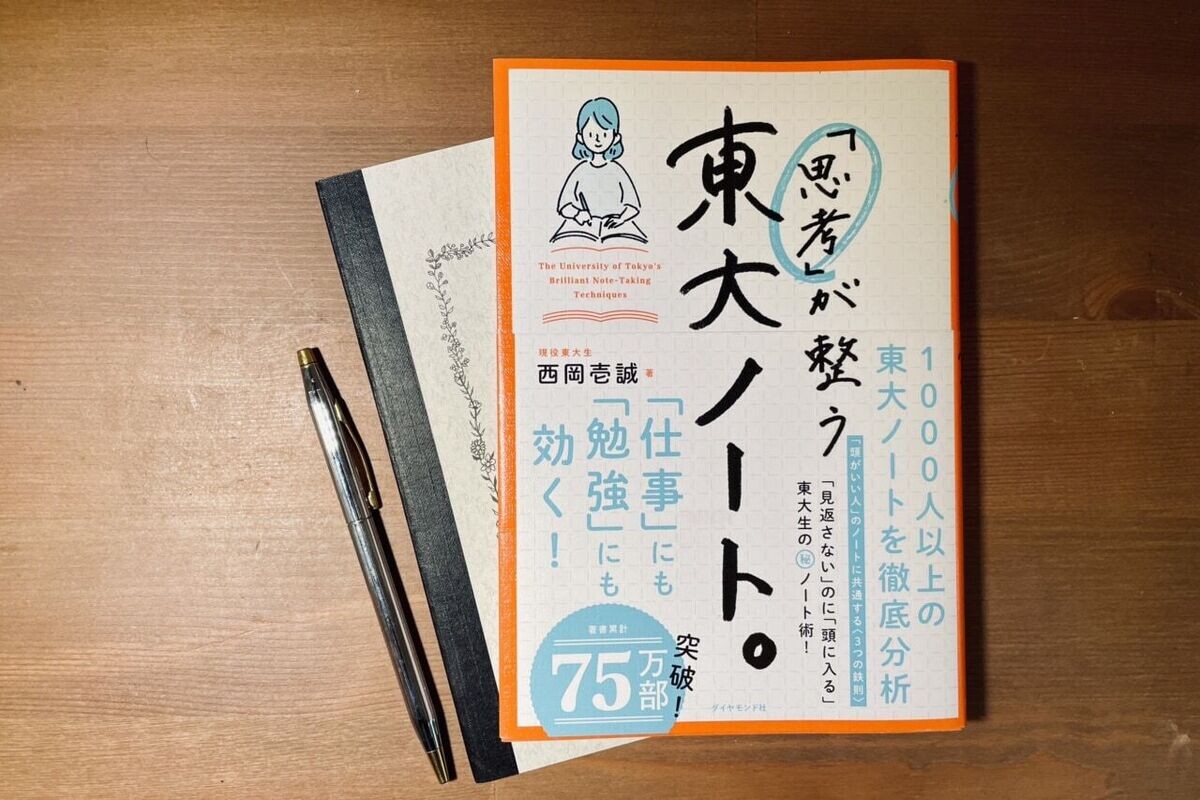 「思考」が整う
東大ノート。
The University of Tokyo's
Brilliant Note-Taking
Techniques
現役東大生
西岡壱誠 著
1000人以上の
東大ノートを徹底分析
「頭がいい人」のノートに共通する〈3つの鉄則〉
「見返さない」のに「頭に入る」
東大生の㊙ノート術!
「仕事」にも
「勉強」にも
効く!
著書累計
75万部
突破!
ダイヤモンド社